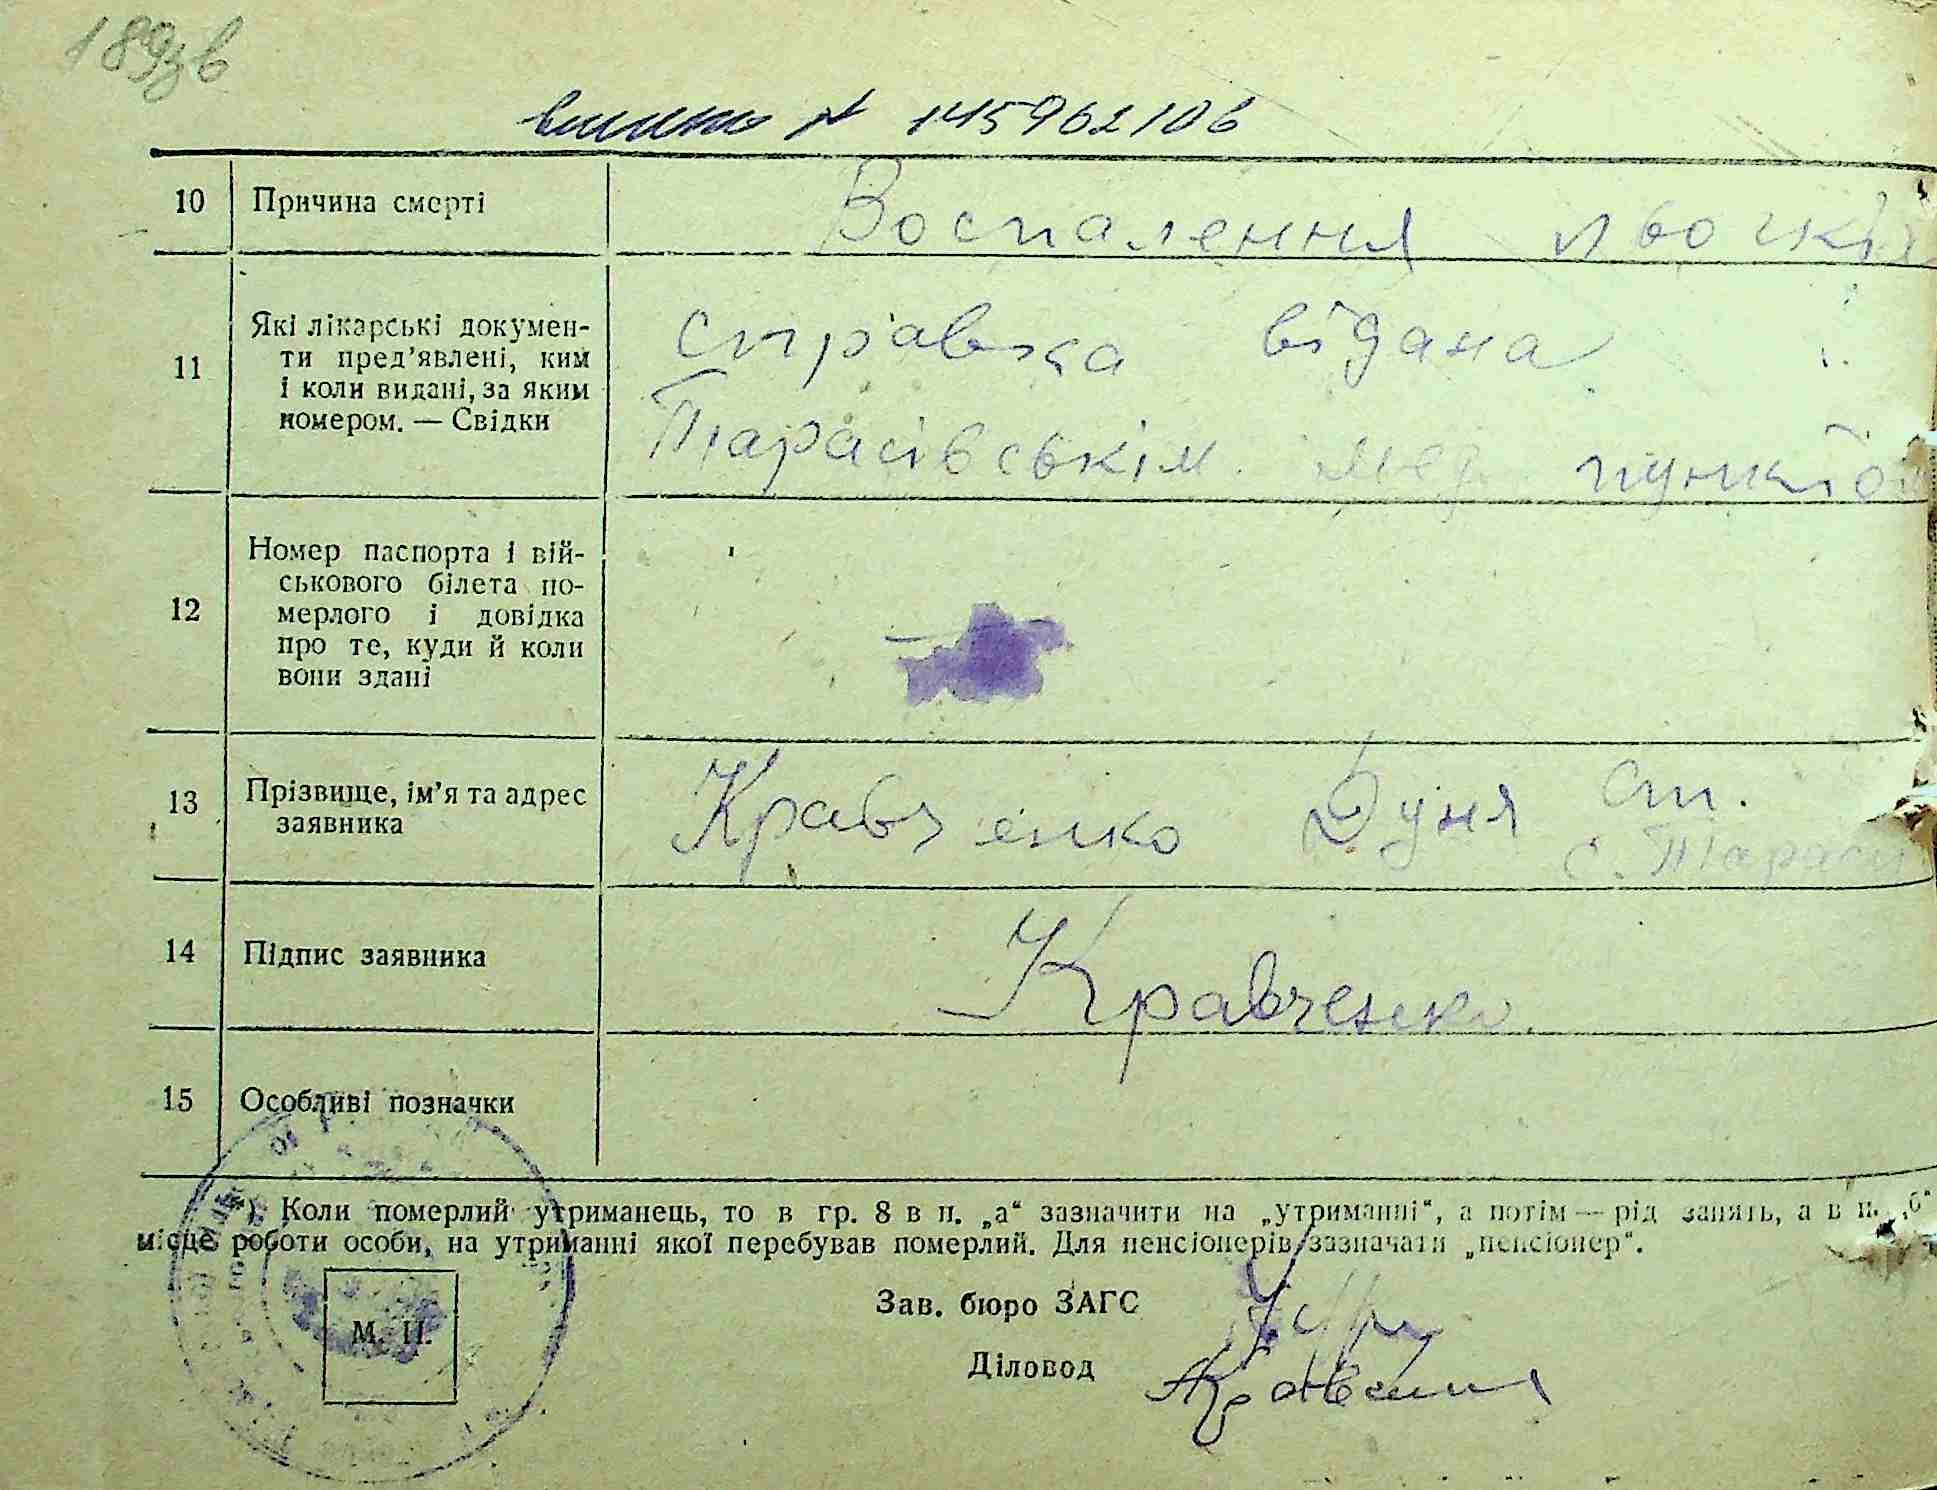 189зв
N 145962106
10 Причина смерті Воспалення льогкіх
11 Які лікарські докумен-
ти пред’явлені, ким
і коли видані, за яким
номером. — Свідки
справка відана
Тарасівськім мед пунктом
12 Номер паспорта і вій-
ськового білета по-
мерлого і довідка
про те, куди й коли
вони здані
—
13 Прізвище, ім’я та адрес
заявника
Кравченко Дуня Ст.
с. Тарасі
14 Підпис заявника Кравченко
15 Особливі позначки
*) Коли померлий утриманець, то в гр. 8 в п. „а“ зазначити на „утриманні“, а потім — рід занять, а в п. „б“
місце роботи особи, на утриманні якої перебував померлий. Для пенсіонерів зазначати „пенсіонер“.
Зав. бюро ЗАГС
М. П.
Діловод